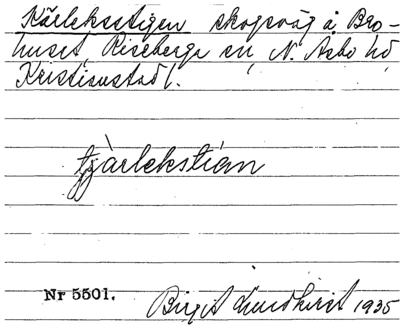 Kärleksstigen skogsväg å Bro-
huset, Riseberga sn, N. Åsbo hd
Kristianstad l.
tjàrlekstían
Nr 5501. Birgit Lundkvist 1935